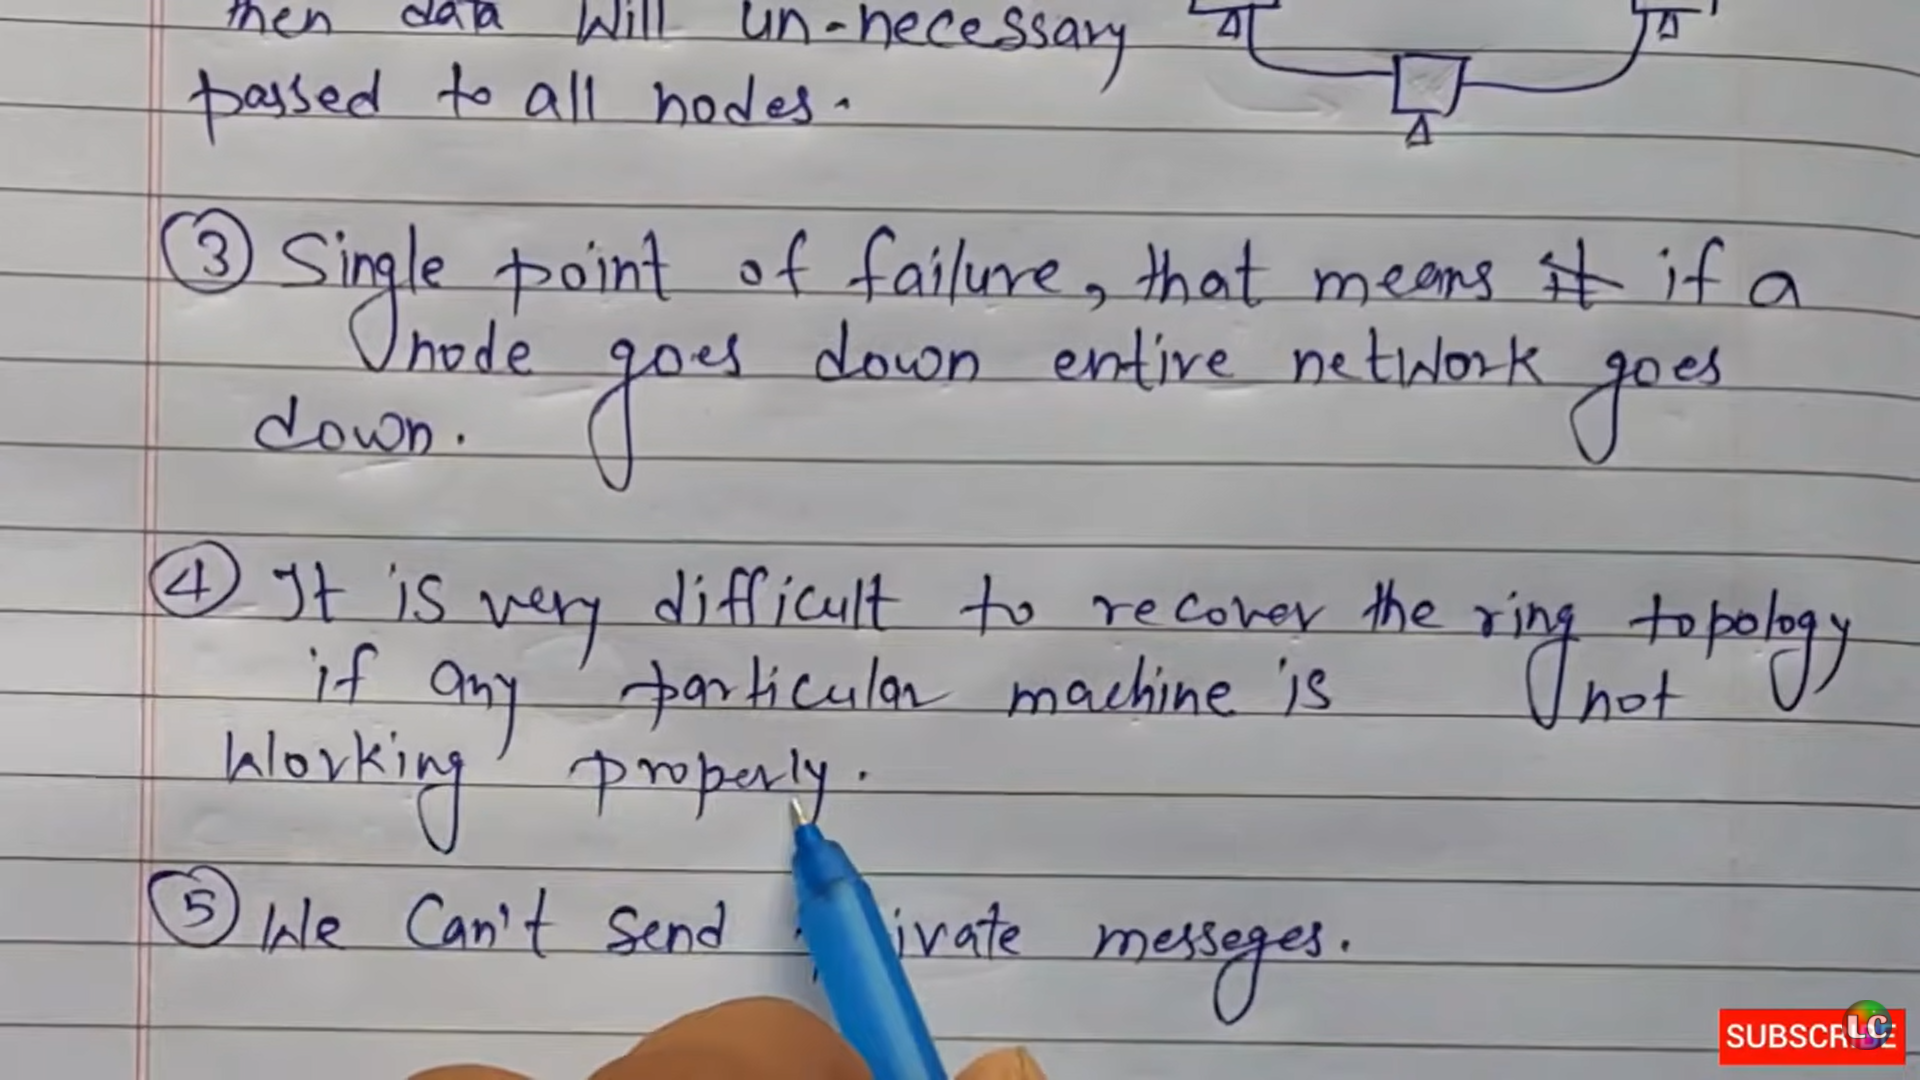 then data will un-necessary
passed to all nodes.
③ Single point of failure, that means it if a
node goes down entire network goes
down.
④ It is very difficult to recover the ring topology
if any particular machine is not
working properly.
⑤ We Can't Send ivate messeges.
SUBSCRIBE
LC